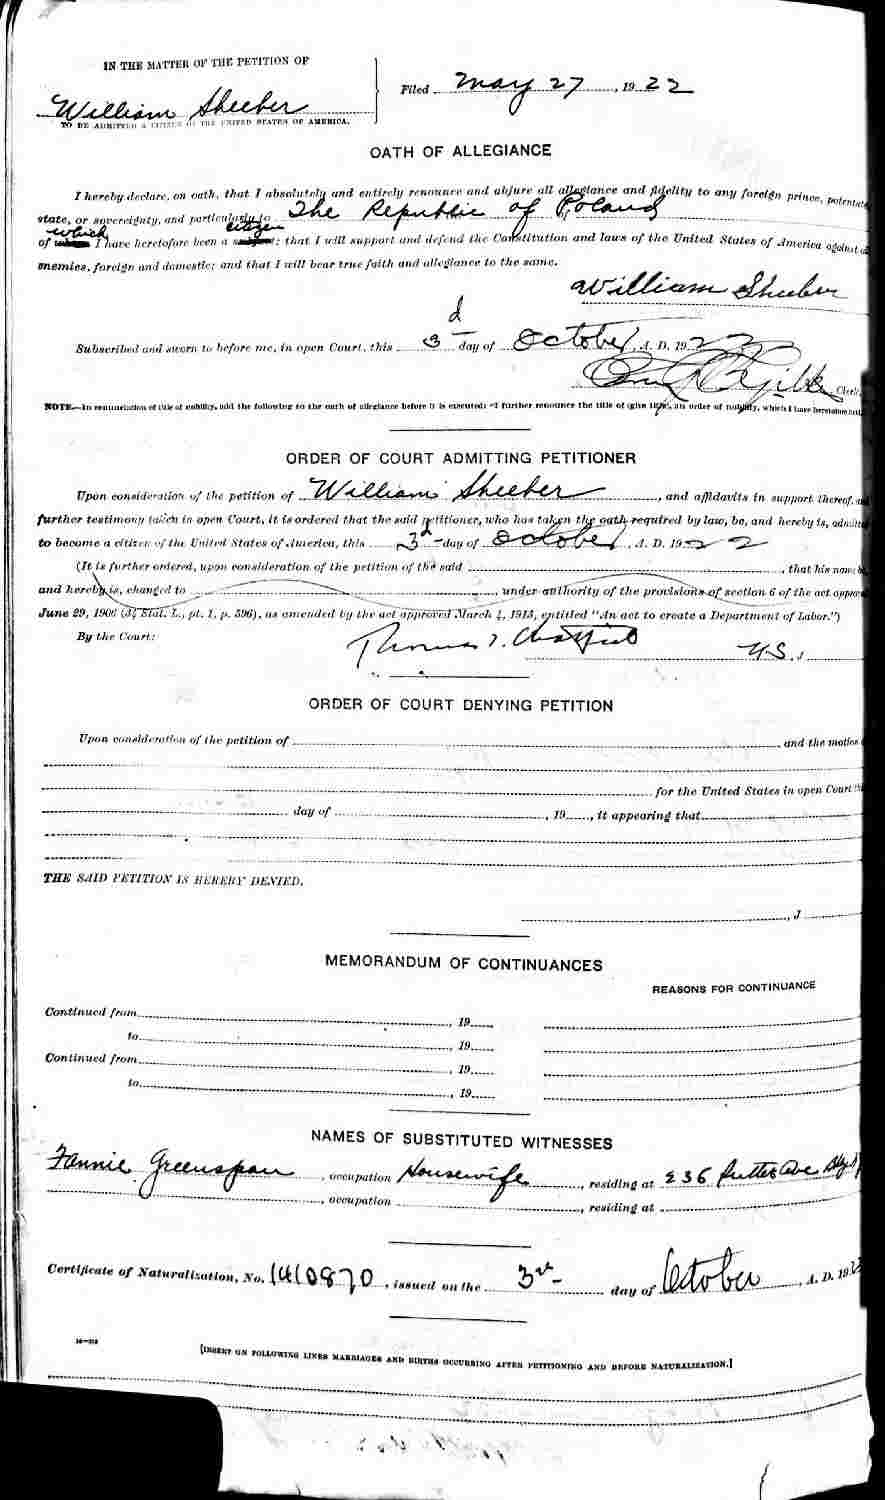 IN THE MATTER OF THE PETITION OF
William Sheeber
Filed May 27, 1922
TO BE ADMITTED A CITIZEN OF THE UNITED STATES OF AMERICA.
OATH OF ALLEGIANCE
I hereby declare, on oath, that I absolutely and entirely renounce and abjure all allegiance and fidelity to any foreign prince, potentate
state, or sovereignty, and particularly to The Republic of Poland
of which I have heretofore been a citizen; that I will support and defend the Constitution and laws of the United States of America against
enemies, foreign and domestic; and that I will bear true faith and allegiance to the same.
William Sheeber
Subscribed and sworn to before me, in open Court, this 3d day of October, A. D. 1922
Clerk.
NOTE.—In renunciation of title of nobility, add the following to the oath of allegiance before it is executed: "I further renounce the title of (give title), an order of nobility, which I have heretofore
ORDER OF COURT ADMITTING PETITIONER
Upon consideration of the petition of William Sheeber, and affidavits in support thereof,
further testimony taken in open Court, it is ordered that the said petitioner, who has taken the oath required by law, be, and hereby is, admitted
to become a citizen of the United States of America, this 3d day of October, A. D. 1922
(It is further ordered, upon consideration of the petition of the said , that his name be
and hereby is, changed to , under authority of the provisions of section 6 of the act approved
June 29, 1906 (34 Stat. L., pt. 1, p. 596), as amended by the act approved March 4, 1913, entitled "An act to create a Department of Labor.")
By the Court:
Thomas I. Chatfield U.S. J
ORDER OF COURT DENYING PETITION
Upon consideration of the petition of and the motion
for the United States in open Court this
day of , 19 , it appearing that
THE SAID PETITION IS HEREBY DENIED.
, J
MEMORANDUM OF CONTINUANCES
REASONS FOR CONTINUANCE
Continued from , 19
to , 19
Continued from , 19
to , 19
NAMES OF SUBSTITUTED WITNESSES
Fannie Greenspan, occupation Housewife, residing at 236 Ave
, occupation , residing at
Certificate of Naturalization, No. 1410870, issued on the 3rd day of October, A. D. 192
[INSERT ON FOLLOWING LINES MARRIAGES AND BIRTHS OCCURRING AFTER PETITIONING AND BEFORE NATURALIZATION.]